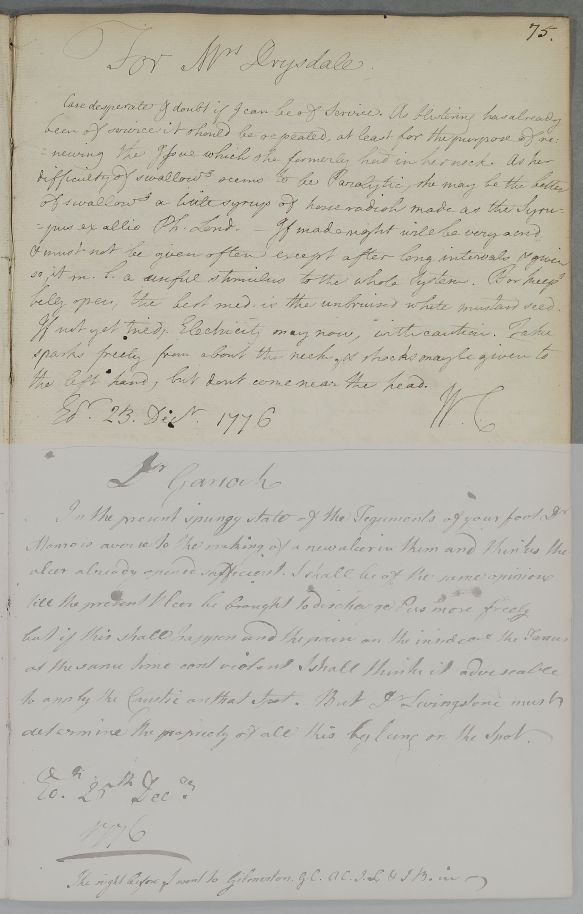 75.
For Mrs Drysdale.
Case desperate & doubt if I can be of Service. As blistering has already
been of service it should be repeated, at least for the purpose of re-
=newing the Issue which she formerly had in her neck. As her
difficulty of swallowg seems to be Paralytic, she may be the better
of swallowg a little syrup of horse radish made as the Syru-
=pus ex allio Ph. Lond. – If made right will be very acrid
& must not be given often except after long intervals & given
so, it m. b. a usefull stimulus to the whole System. For keepg
belly open, the best med. is the unbruised white mustard seed.
If not yet tried, Electricity may now, with caution. Take
sparks freely from about the neck, & shocks may be given to
the left hand, but dont come near the head.
Edr. 23. Decr. 1776
W. C
Dr Garioch
In the present spungy state of the Teguments of your foot Dr
Monro is averse to the making of a new ulcer in them and thinks the
ulcer already opened sufficient. I shall be of the same opinion
till the present Ulcer be brought to discharge Pus more freely
but if this shall happen and the pain on the inside of the Tarsus
at the same time cont violent I shall think it adviseable
to apply the Caustic on that Spot. But Dr Livingstone must
determine the propriety of all this by being on the Spot.
Edn. 25th Decr
1776
The night before I went to Gilmerston. G C. A C. J. & J B. in